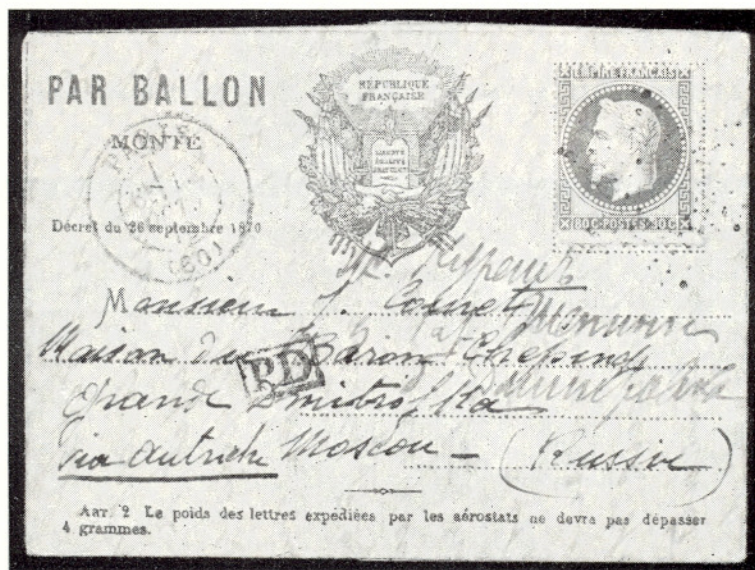 PAR BALLON
MONTÉ
Décret du 26 septembre 1870
PARIS
(60)
RÉPUBLIQUE
FRANÇAISE
LIBERTÉ
ÉGALITÉ
FRATERNITÉ
EMPIRE FRANÇAIS
80C POSTES 80C
Monsieur J.
Maison du Baron
P.D
Grande Dmitrofka
via Autriche Moscou – (Russie)
ART. 2 Le poids des lettres expédiées par les aérostats ne devra pas dépasser
4 grammes.